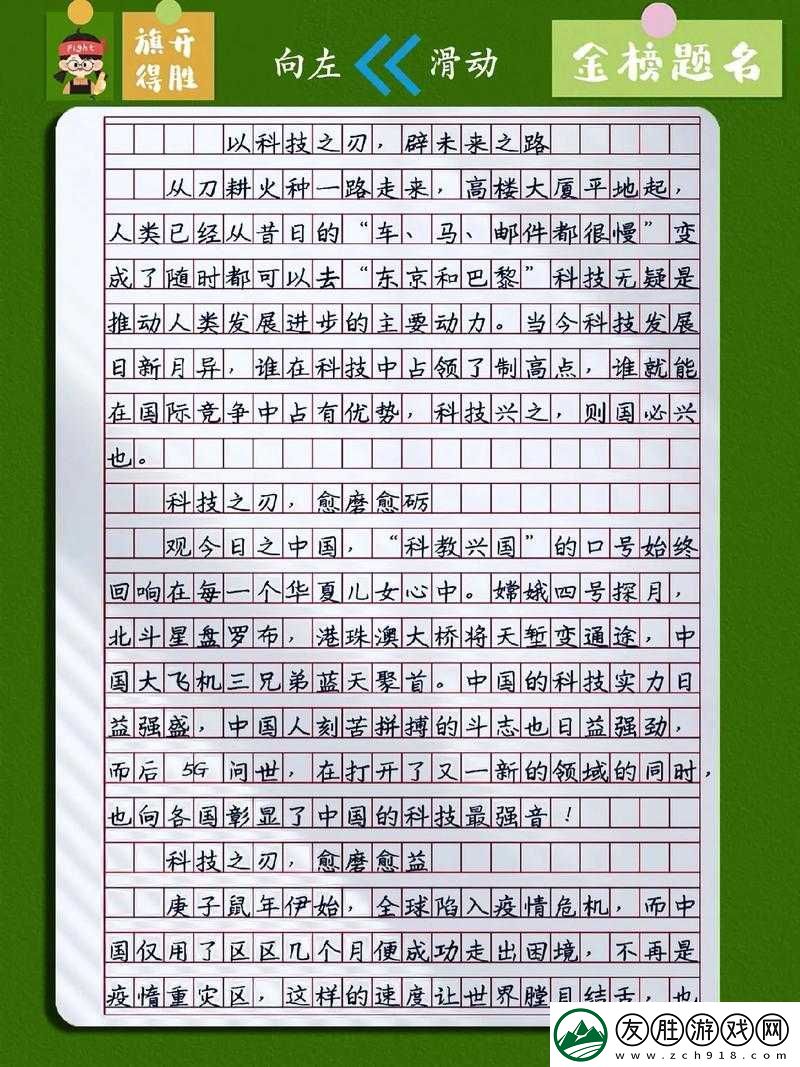 Fight
旗开
得胜
向左 滑动
金榜题名
以科技之刃，辟未来之路
从刀耕火种一路走来，高楼大厦平地起，
人类已经从昔日的“车、马、邮件都很慢”变
成了随时都可以去“东京和巴黎”科技无疑是
推动人类发展进步的主要动力。当今科技发展
日新月异，谁在科技中占领了制高点，谁就能
在国际竞争中占有优势，科技兴之，则国必兴
也。
科技之刃，愈磨愈砺
观今日之中国，“科教兴国”的口号始终
回响在每一个华夏儿女心中。嫦娥四号探月，
北斗星盘罗布，港珠澳大桥将天堑变通途，中
国大飞机三兄弟蓝天聚首。中国的科技实力日
益强盛，中国人刻苦拼搏的斗志也日益强劲，
而后 5G 问世，在打开了又一新的领域的同时，
也向各国彰显了中国的科技最强音！
科技之刃，愈磨愈益
庚子鼠年伊始，全球陷入疫情危机，而中
国仅用了区区几个月便成功走出困境，不再是
疫情重灾区，这样的速度让世界瞠目结舌，也
友胜游戏网
www.zch918.com